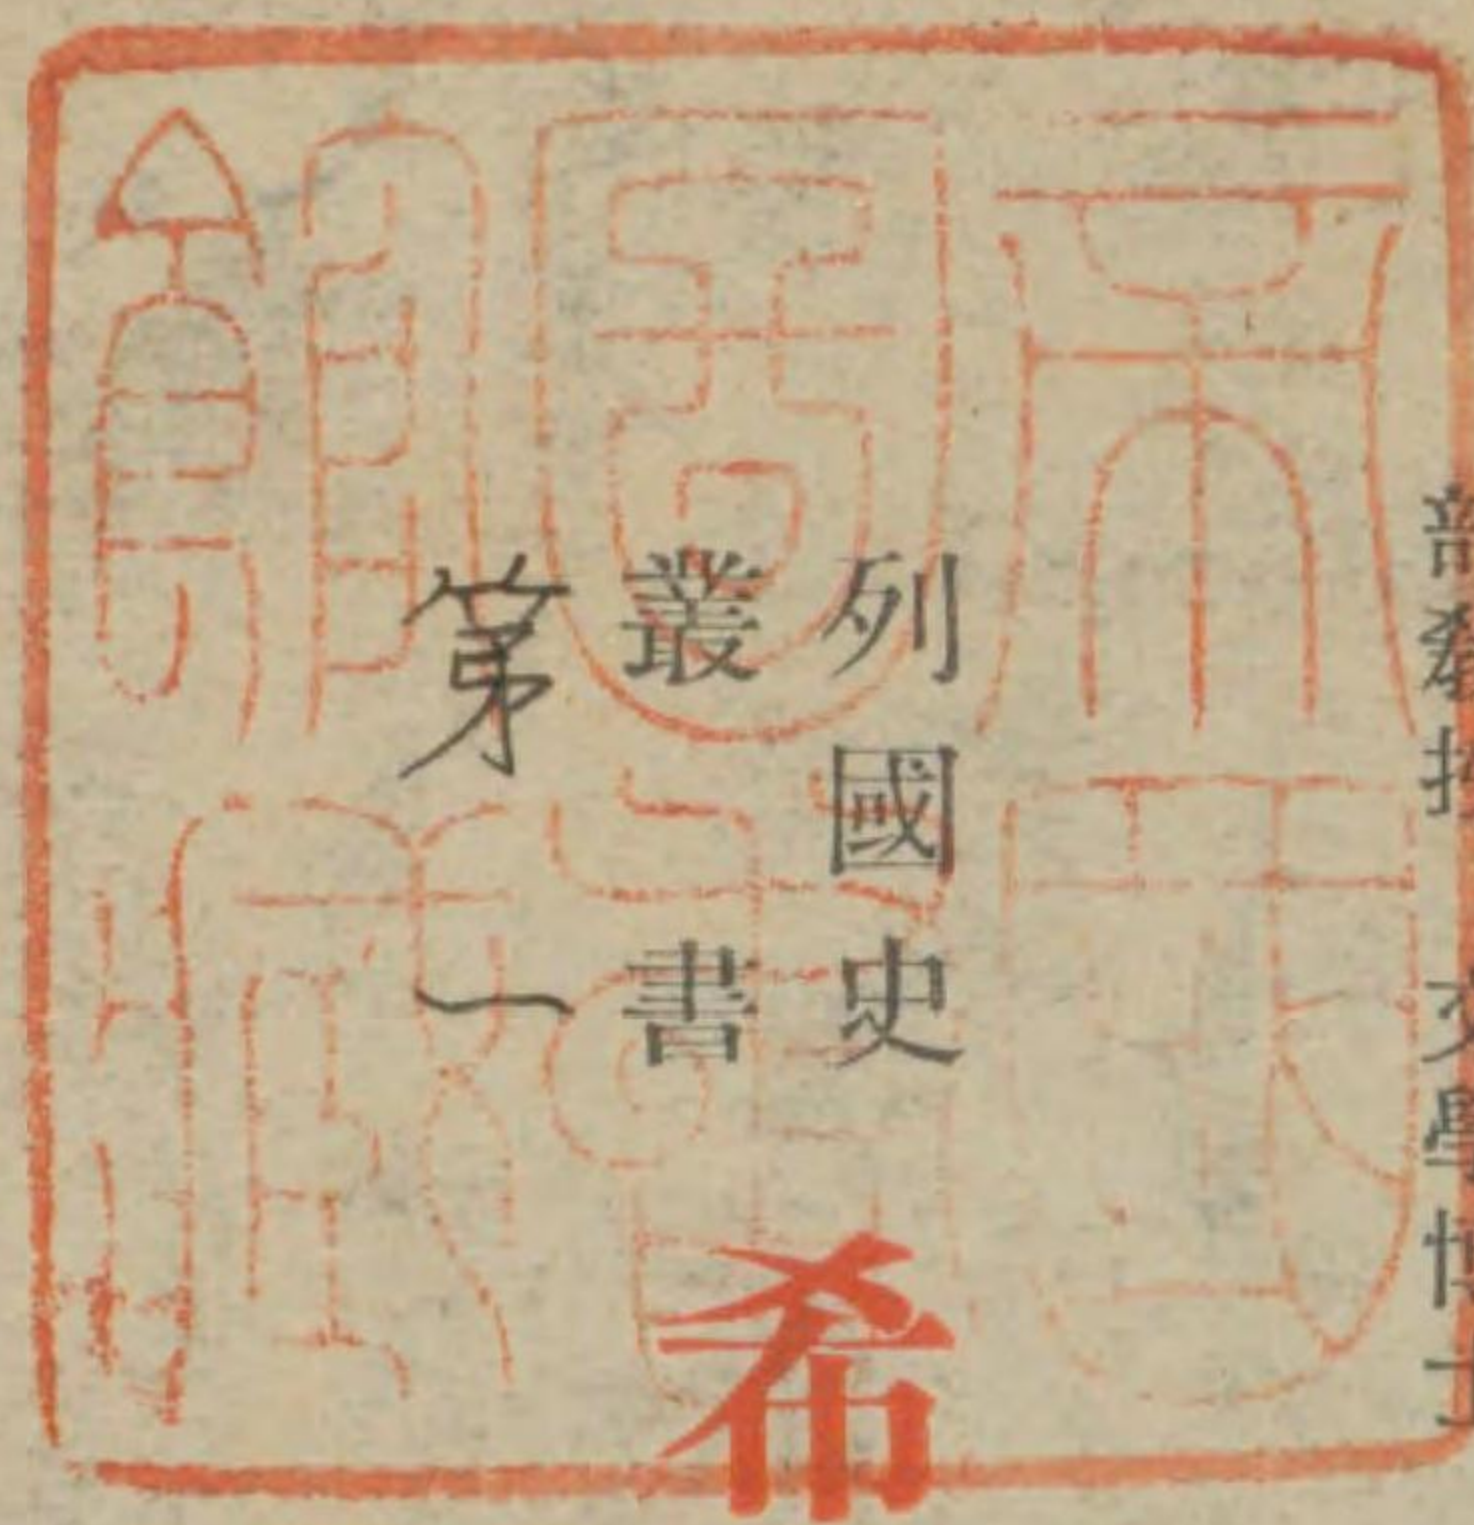 帝國
圖書
館藏
列國史
叢書
第一
希